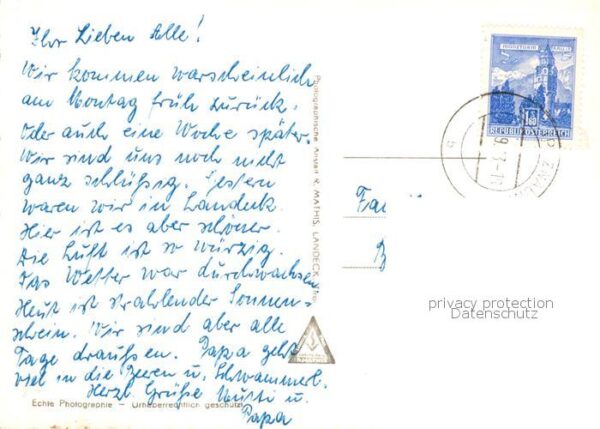 Ihr Lieben Alle!
Wir kommen warscheinlich
am Montag früh zurück.
Oder auch eine Woche später.
Wir sind uns noch nicht
ganz schlüßig. Gestern
waren wir in Landeck.
Hier ist es aber schöner.
Die Luft ist so würzig.
Das Wetter war durchwachsen
Heut ist strahlender Sonnen-
schein. Wir sind aber alle
Tage draußen. Papa geht
viel in die Beeren u. Schwammerl.
Herzl. Grüße Mutti u.
Papa
Echte Photographie – Urheberrechtlich geschützt
Photographische Anstalt R. MATHIS, LANDECK, Tirol
REPUBLIK ÖSTERREICH
Fa
B
privacy protection
Datenschutz